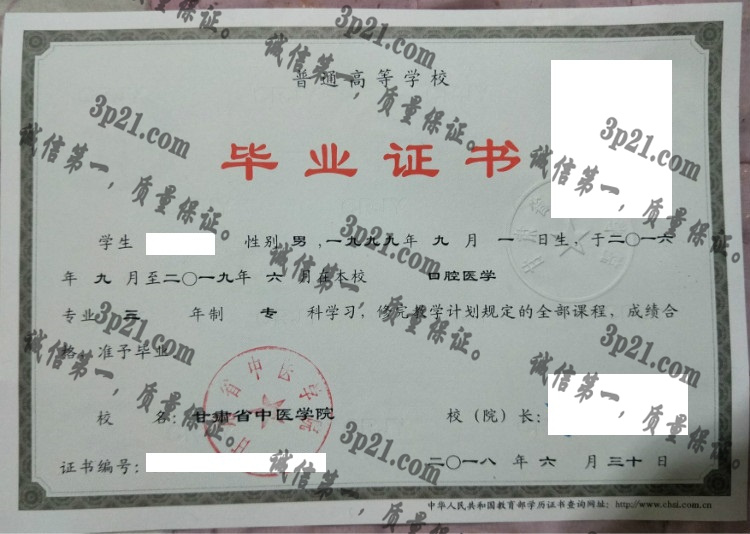 普通高等学校
毕业证书
学生 性别 男 ,一九九九年 九 月 一 日生,于二〇一六
年 九 月至二〇一九年 六 月在本校 口腔医学
专业 三 年制 专 科学习,修完教学计划规定的全部课程,成绩合
格,准予毕业。
校 名: 甘肃省中医学院 校(院)长:
证书编号: 二〇一八 年 六 月 三十 日
中华人民共和国教育部学历证书查询网址: http://www.chsi.com.cn
3p21.com
诚信第一,质量保证。
3p21.com
诚信第一,质量保证。
3p21.com
诚信第一,质量保证。
3p21.com
诚信第一,质量保证。
3p21.com
诚信第一,质量保证。
3p21.com
诚信第一,质量保证。
3p21.com
诚信第一,质量保证。
3p21.com
诚信第一,质量保证。